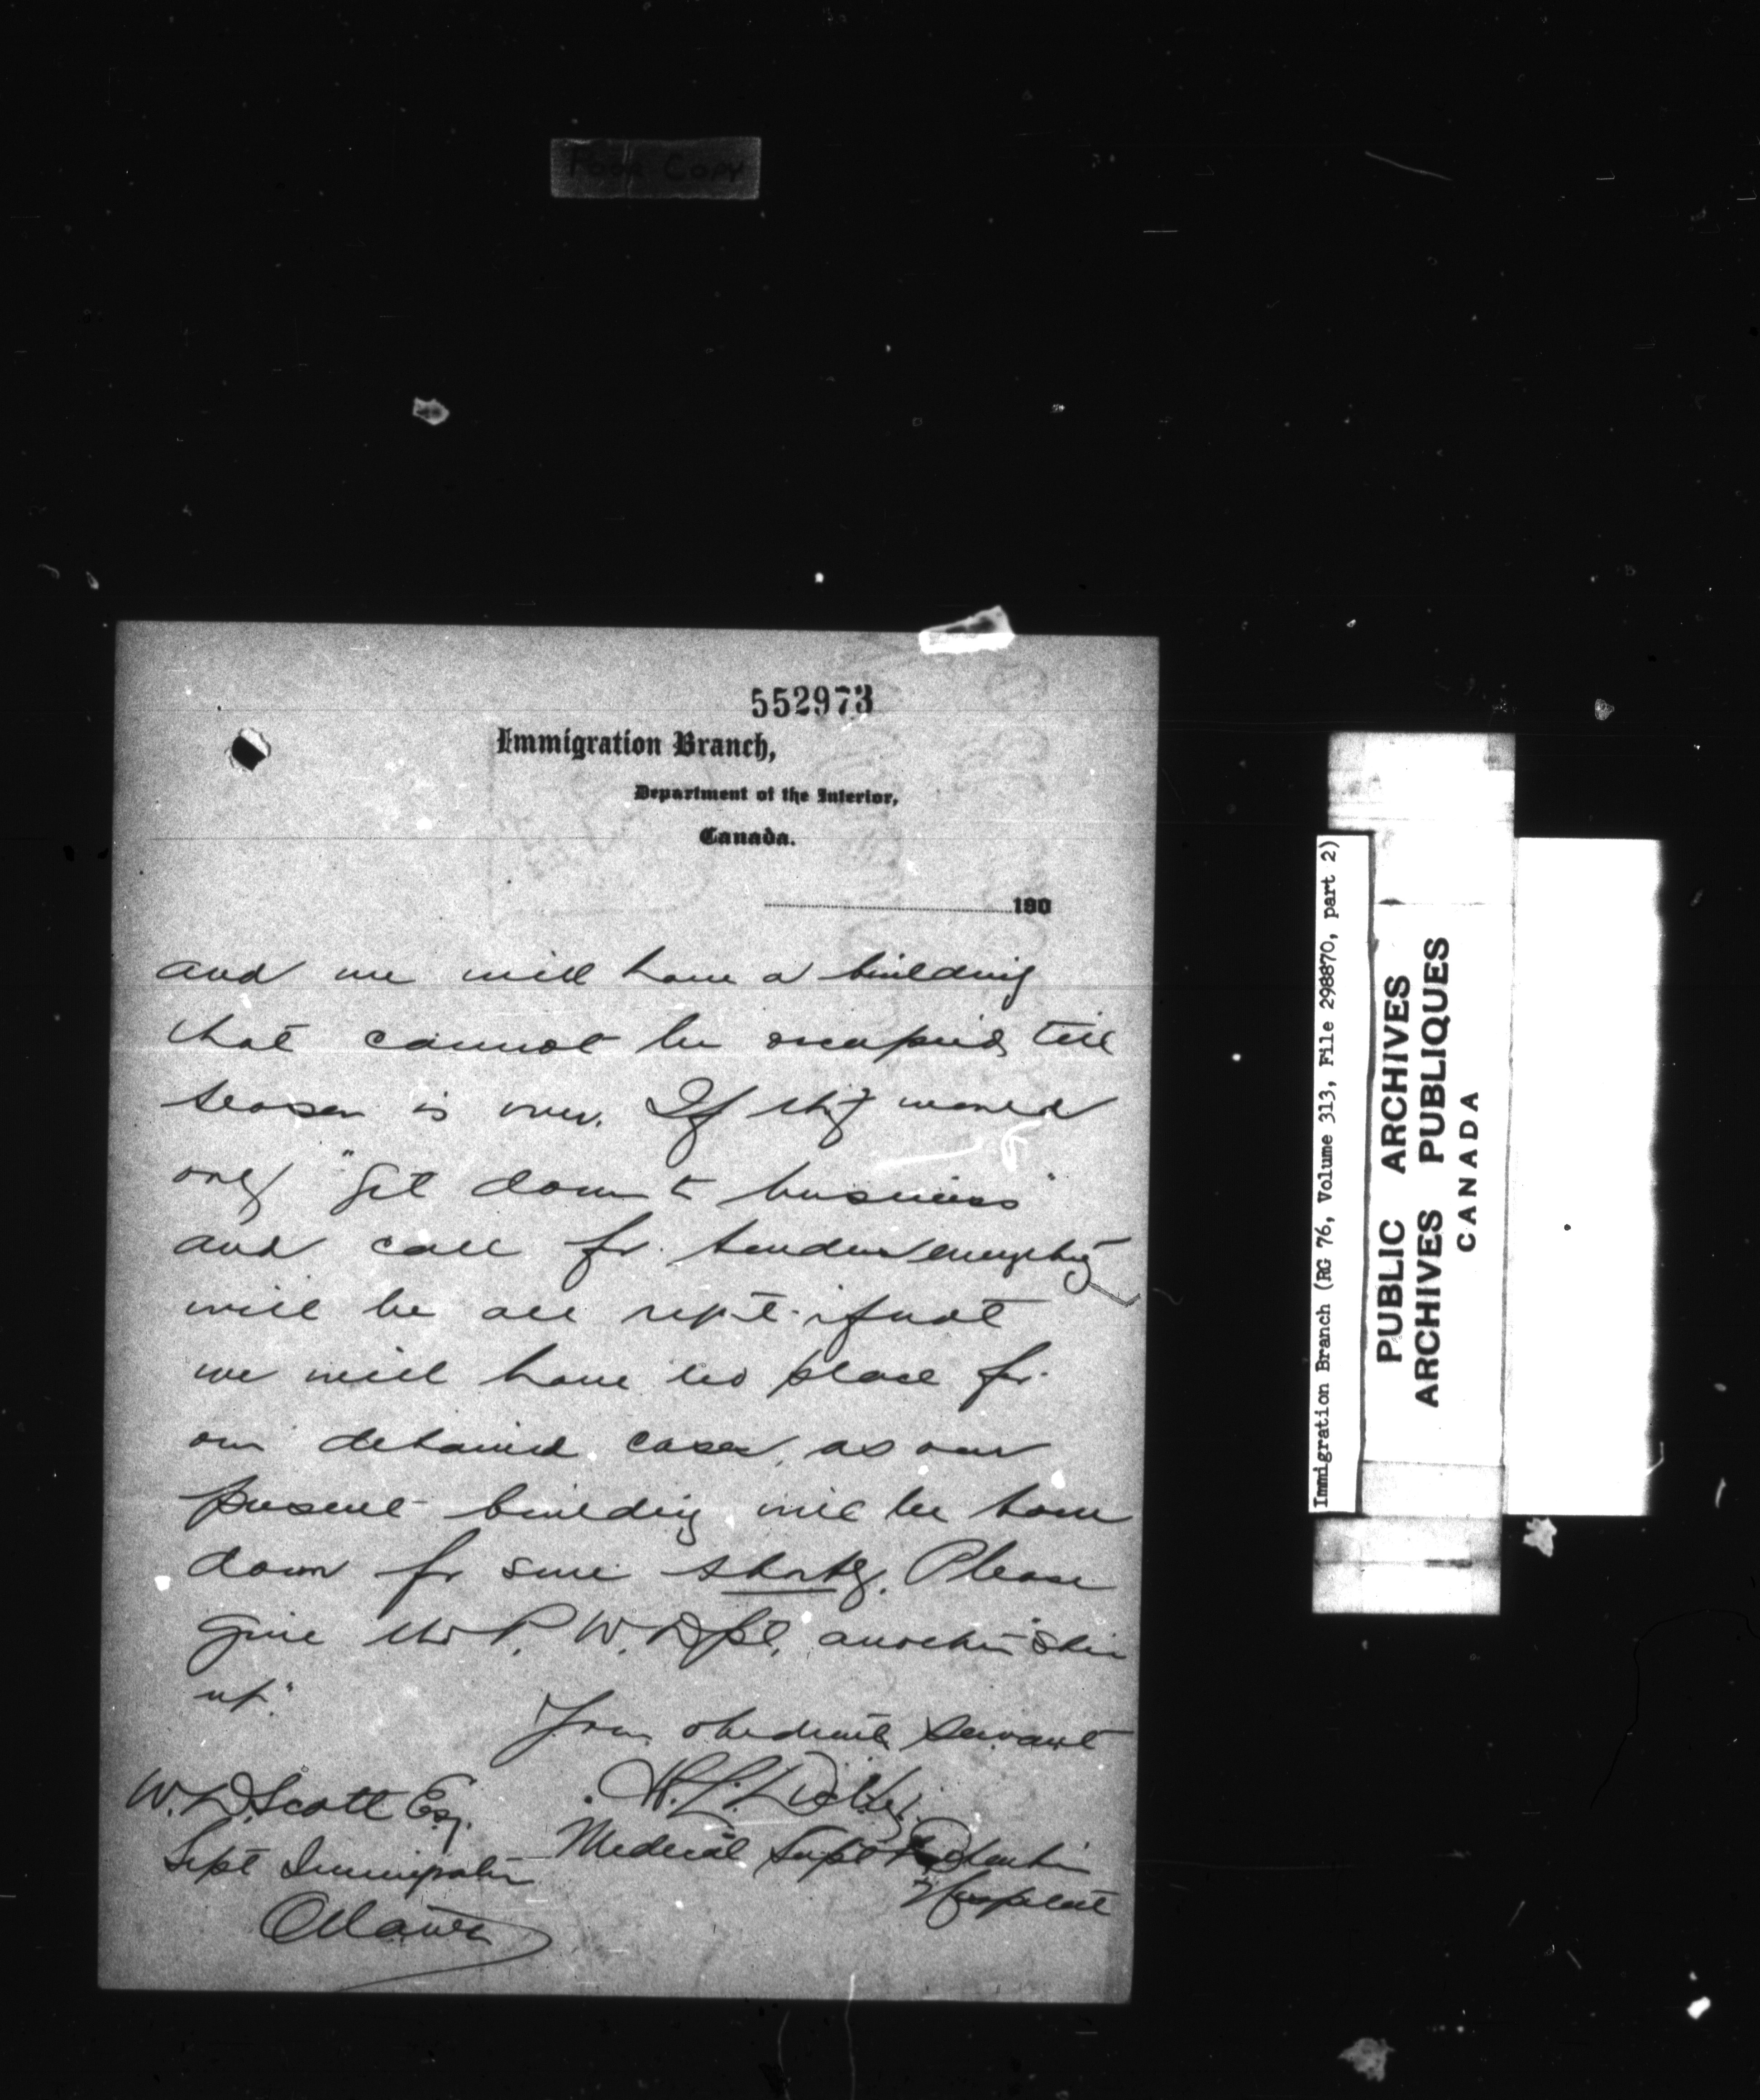 Poor Copy
552973
Immigration Branch,
Department of the Interior,
Canada.
190
and we will have a building
that cannot be occupied till
season is over. If they would
only "get down to business"
and call for tenders everything
will be all right - if not
we will have no place for
our detained cases, as our
present building will be torn
down for sure shortly. Please
give the P. W. Dept. another "stir
up."
Your obedient servant
W. D. Scott Esq.
Supt Immigration
Ottawa
Medical Supt Detention
Hospital
Immigration Branch (RG 76, Volume 313, File 298870, part 2)
PUBLIC ARCHIVES
ARCHIVES PUBLIQUES
CANADA